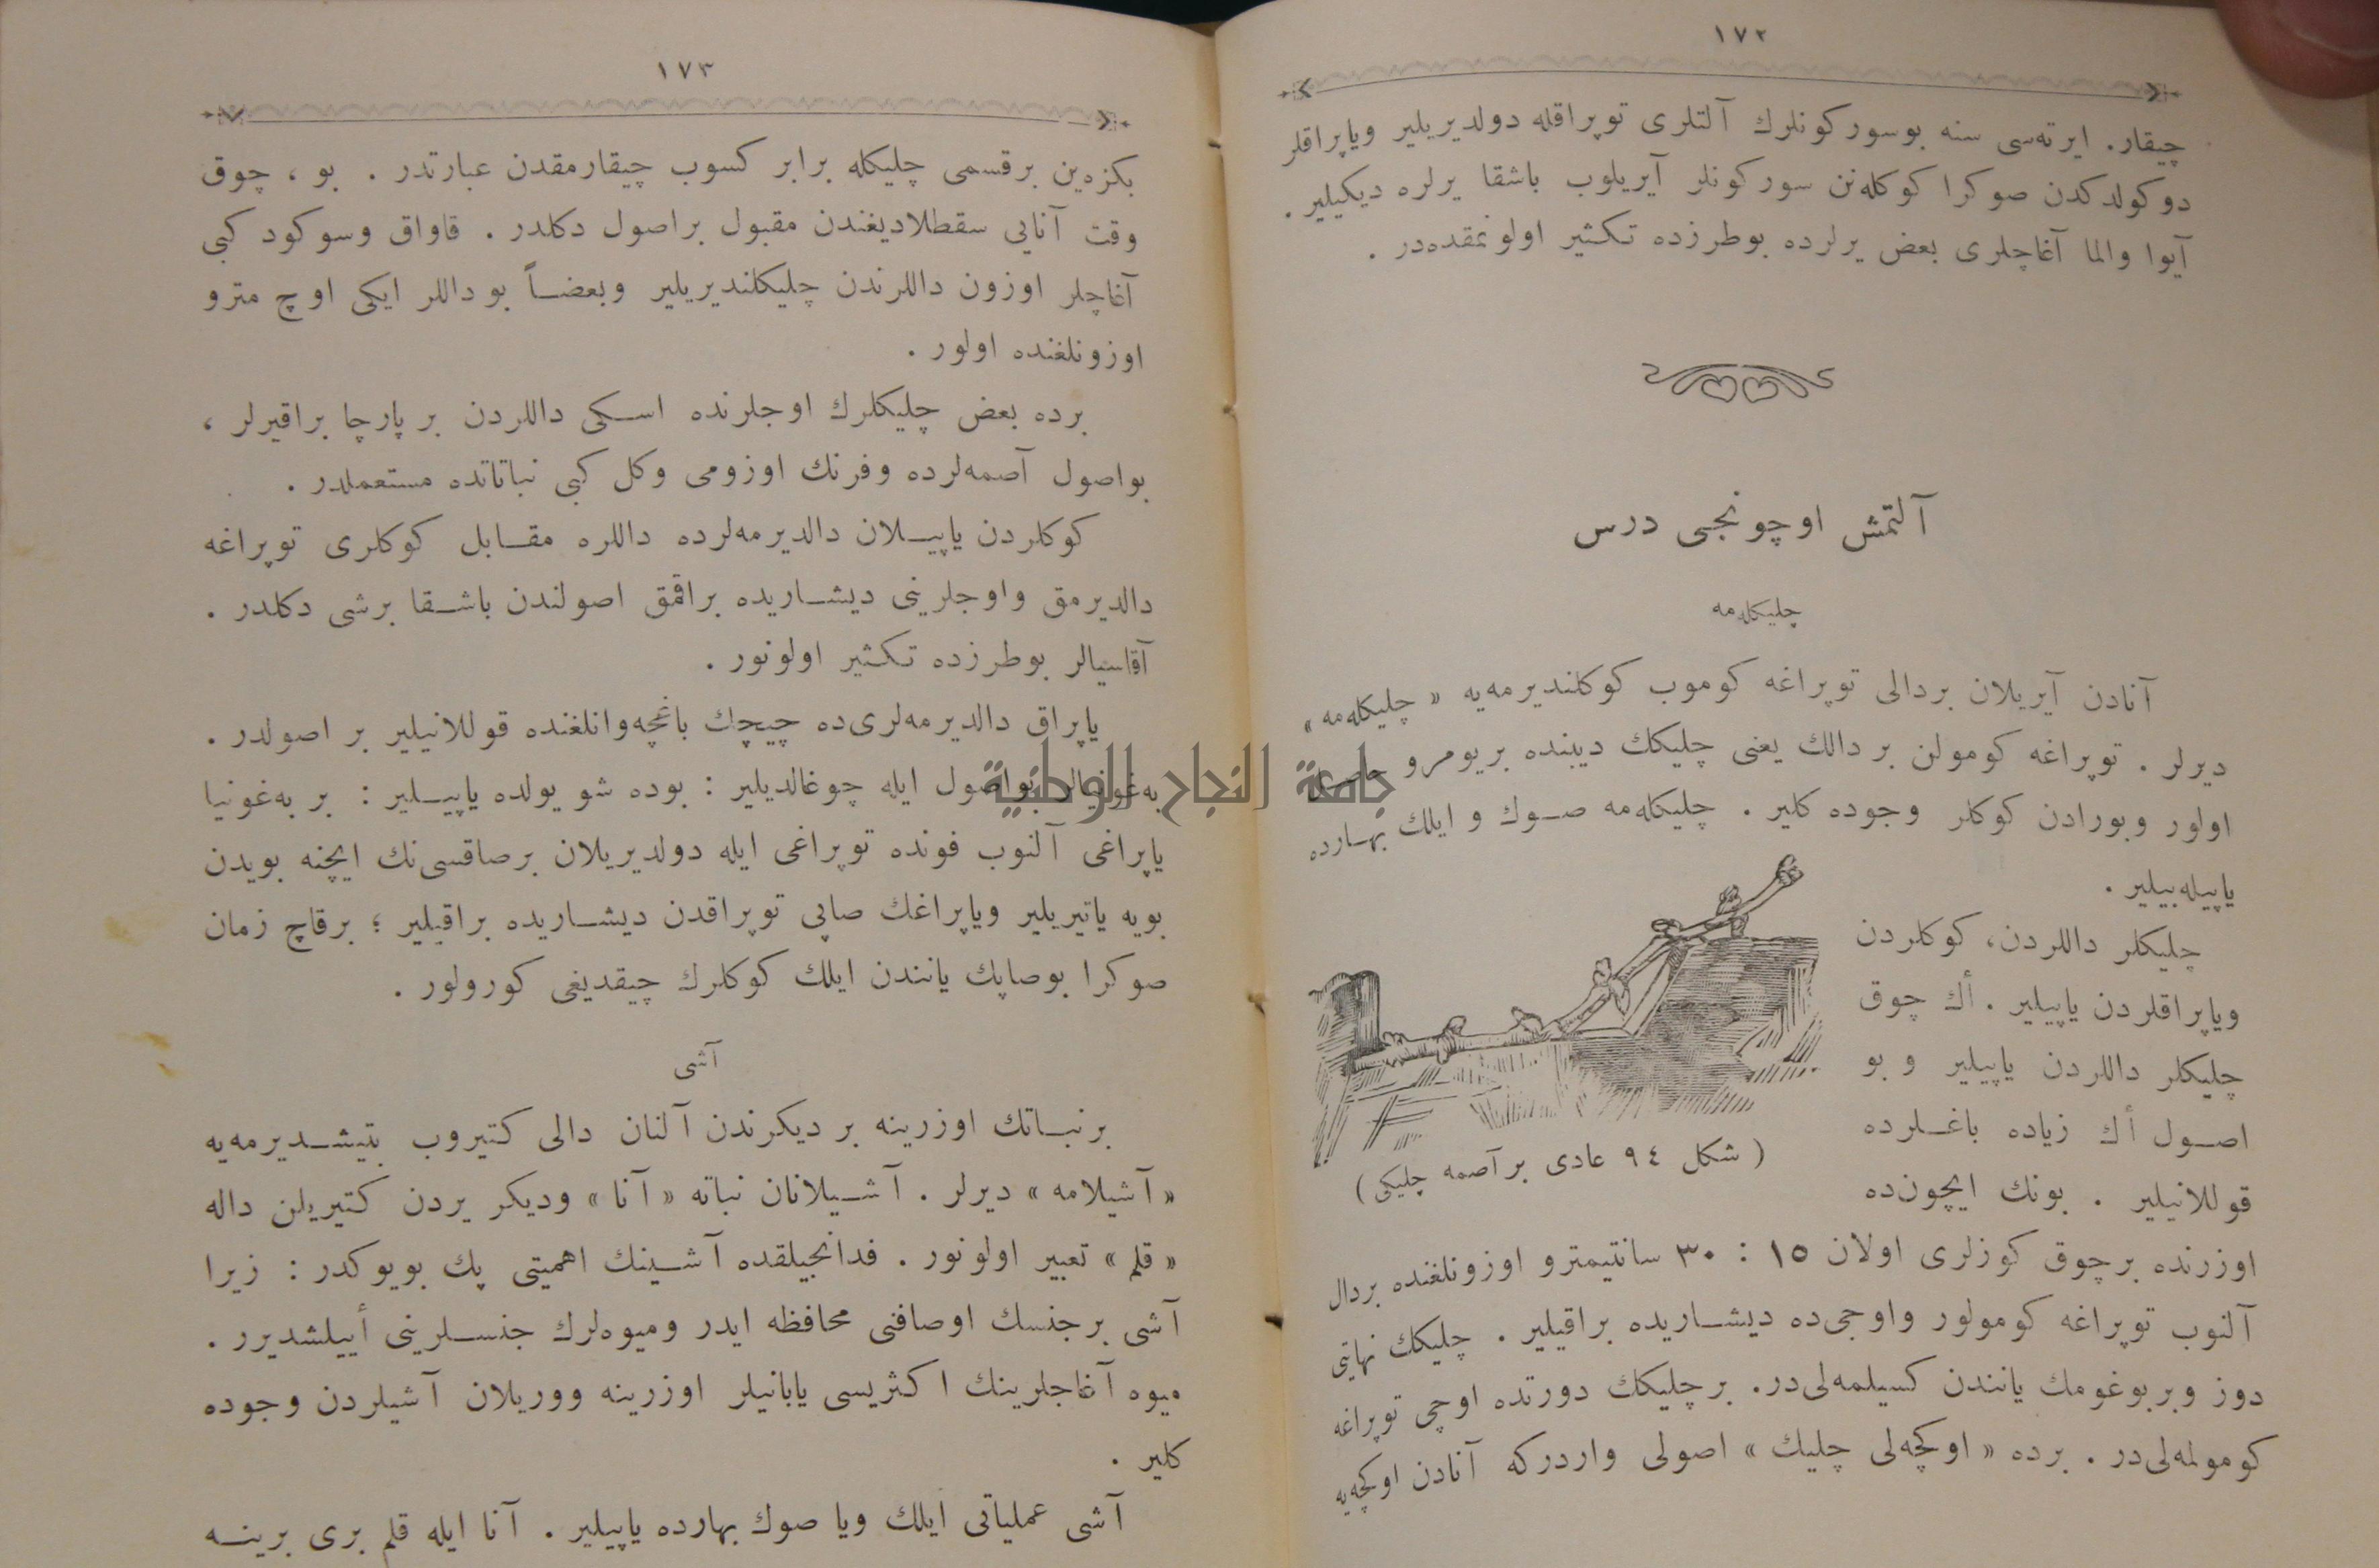 ١٧٢
چيقار. ايرته‌سى سنه بوسوركونلرك آلتلرى توپراقله دولديريلير وياپراقلر
دوكولدكدن صوكرا كوكله‌نن سوركونلر آيريلوب باشقا يرلره ديكيلير .
آيوا والما آغاچلرى بعض يرلرده بوطرزده تكثير اولونمقده‌در .
آلتمش اوچونجى درس
چليكله‌مه
آنادن آيريلان بردالى توپراغه كوموب كوكلنديرمه‌يه « چليكله‌مه »
ديرلر . توپراغه كومولن بر دالك يعنى چليكك ديبنده بريومرو حاصل
اولور وبورادن كوكلر وجوده كلير . چليكله‌مه صوك و ايلك بهارده
ياپيله‌بيلير .
چليكلر داللردن، كوكلردن
وياپراقلردن ياپيلير . أك چوق
چليكلر داللردن ياپيلير و بو
اصول أك زياده باغلرده
قوللانيلير . بونك ايچون‌ده
( شكل ٩٤ عادى برآصمه چليكى )
اوزرنده برچوق كوزلرى اولان ١٥ : ٣٠ سانتيمترو اوزونلغنده بردال
آلنوب توپراغه كومولور واوجى‌ده ديشاريده براقيلير . چليكك نهايتى
دوز وبربوغومك يانندن كسيلمه‌لى‌در. برچليكك دورتده اوچى توپراغه
كومولمه‌لى‌در . برده « اوكچه‌لى چليك » اصولى واردركه آنادن اوكچه‌يه
١٧٣
بكزه‌ين برقسمى چليكله برابر كسوب چيقارمقدن عبارتدر . بو ، چوق
وقت آنايى سقطلاديغندن مقبول براصول دكلدر . قاواق وسوكود كبى
آغاچلر اوزون داللرندن چليكلنديريلير وبعضاً بو داللر ايكى اوچ مترو
اوزونلغنده اولور .
برده بعض چليكلرك اوجلرنده اسكى داللردن بر پارچا براقيرلر ،
بواصول آصمه‌لرده وفرنك اوزومى وكل كبى نباتاتده مستعملدر .
كوكلردن ياپيلان دالديرمه‌لرده داللره مقابل كوكلرى توپراغه
دالديرمق واوجلرينى ديشاريده براقمق اصولندن باشقا برشى دكلدر .
آقاسيالر بوطرزده تكثير اولونور .
ياپراق دالديرمه‌لرى‌ده چيچك باغچه‌وانلغنده قوللانيلير بر اصولدر .
به‌غونيالر بواصول ايله چوغالديلير : بوده شو يولده ياپيلير : بر به‌غونيا
ياپراغى آلنوب فونده توپراغى ايله دولديريلان برصاقسى‌نك ايچنه بويدن
بويه ياتيريلير وياپراغك صاپى توپراقدن ديشاريده براقيلير ؛ برقاچ زمان
صوكرا بوصاپك يانندن ايلك كوكلرك چيقديغى كورولور .
جامعة النجاح الوطنية
آشى
برنباتك اوزرينه بر ديكرندن آلنان دالى كتيروب يتيشديرمه‌يه
« آشيلامه » ديرلر . آشيلانان نباته « آنا » وديكر يردن كتيريلن داله
« قلم » تعبير اولونور . فدانجيلقده آشينك اهميتى پك بويوكدر : زيرا
آشى برجنسك اوصافنى محافظه ايدر وميوه‌لرك جنسلرينى أييلشديرر .
ميوه آغاجلرينك اكثريسى يابانيلر اوزرينه ووريلان آشيلردن وجوده
كلير .
آشى عملياتى ايلك ويا صوك بهارده ياپيلير . آنا ايله قلم برى برينه